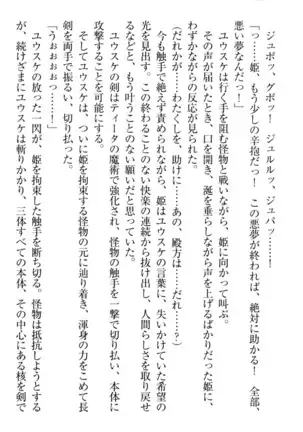 ジュポッ、グポッ！　ジュルルッ、ジュパッ……！
「っ……姫、もう少しの辛抱だっ！　この悪夢が終われば、絶対に助かる！　全部、
悪い夢なんだっ！」
ユウスケは行く手を阻む怪物と戦いながら、姫に向かって叫ぶ。
その声が届いたとき、口を開き、涎を垂らしながら声を上げるばかりだった姫に、
わずかながらの反応が見られた。
（だれかが……わたくしを、助けに……あの、殿方は……だれ……？）
今も触手で絶えず責められながら、姫はユウスケの言葉に、失いかけていた希望の
光を見出す。この終わることのない快楽の連続から抜け出し、人間らしさを取り戻せ
るなどと、もう叶うことのない願いだと思っていた。
ユウスケの剣はティータの魔術で強化され、怪物の触手を一撃で切り払い、本体に
攻撃することを可能にする。
そしてユウスケは、ついに姫を拘束する怪物の元に辿り着き、渾身の力をこめて長
剣を両手で振るい、切り払った。
「うおおおおぉっ……！」
ユウスケの放った一閃が、姫を拘束した触手を断ち切る。怪物は抵抗しようとする
が、続けざまにユウスケは斬りかかり、三体すべての本体、その中心にある核を剣で